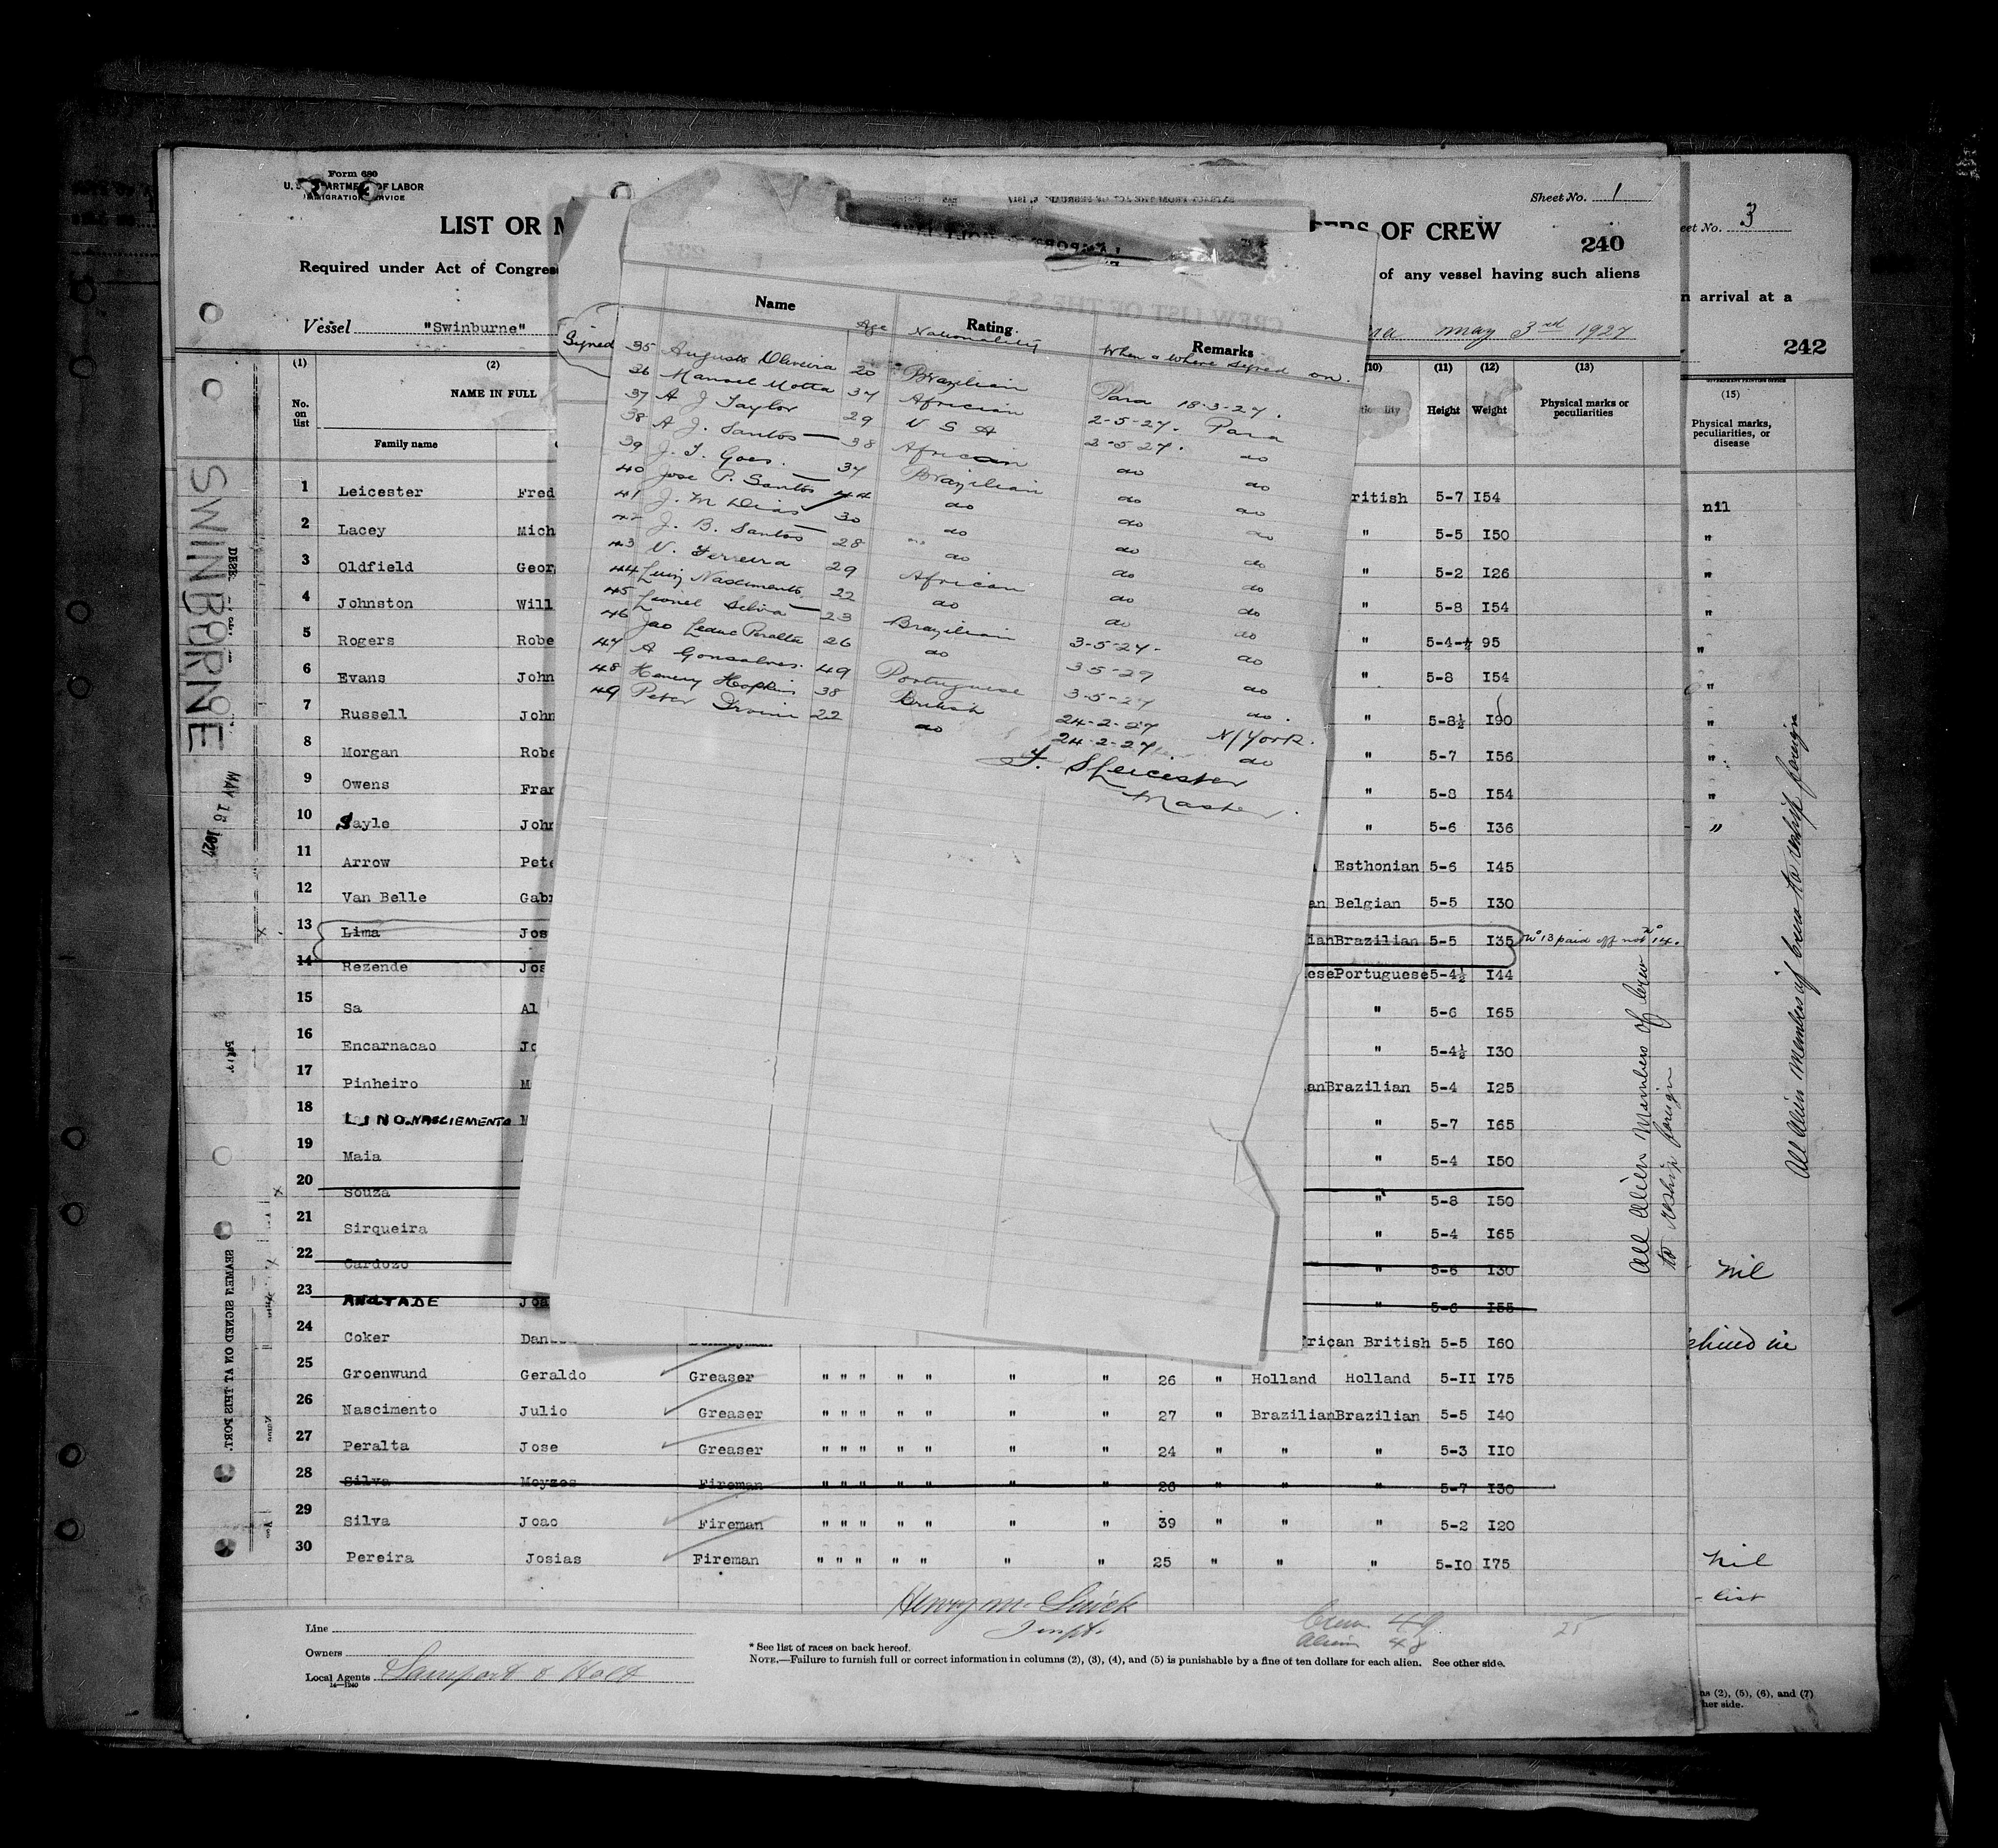 Form 680
OF LABOR
Sheet No. 1
LIST OR M
OF CREW
240
Required under Act of Congress
of any vessel having such aliens
Vessel "Swinburne"
May 3rd 1927
eet No. 3
n arrival at a
242
Name Rating Remarks
Age Nationality When & where signed on.
Signed
35 Augusto Oliveira 20 Brazilian Para 18-3-27.
36 Manoel Motta 34 African 2-5-27. Para
37 A J Taylor 29 U S A 2-5-27. do
38 A J. Santos 38 African do do
39 J. T. Goes. 34 Brazilian do do
40 Jose P. Santos 44 do do do
41 J. M Dias 30 do do do
42 J. B. Santos 28 do do do
43 V. Ferreira 29 African do do
44 Luiz Nascimento 22 do do do
45 Lionel Silva 23 Brazilian 3-5-27- do
46 Jao Leduc Peralta 26 do 3-5-27 do
47 A Gonsalves. 49 Portuguese 3-5-27 do.
48 Henery Hopkins 38 British 24-2-27 N/York.
49 Peter Irvine 22 do 24-2-27 do
F. S Leicester
Master.
(1) (2) (10) (11) (12) (13)
No. on list
NAME IN FULL
Family name
Height Weight
Physical marks or peculiarities
(15)
Physical marks, peculiarities, or disease
1 Leicester Fred ritish 5-7 I54 nil
2 Lacey Mich " 5-5 I50 "
3 Oldfield Geor " 5-2 I26 "
4 Johnston Will " 5-8 I54 "
5 Rogers Robe " 5-4-½ 95 "
6 Evans John " 5-8 I54 "
7 Russell John " 5-8½ I90 "
8 Morgan Robe " 5-7 I56 "
9 Owens Fran " 5-8 I54 "
10 Sayle John " 5-6 I36 "
11 Arrow Pete Esthonian 5-6 I45
12 Van Belle Gabr an Belgian 5-5 I30
13 Lima Jos ianBrazilian 5-5 I35 No 13 paid off not No 14.
14 Rezende Jos esePortuguese 5-4½ I44
15 Sa Al " 5-6 I65
16 Encarnacao Jo " 5-4½ I30
17 Pinheiro M anBrazilian 5-4 I25
18 LINO.NASCIEMENTO " 5-7 I65
19 Maia " 5-4 I50
20 Souza " 5-8 I50
21 Sirqueira " 5-4 I65
22 Cardozo " 5-6 I30
23 ANDTADE Joa " 5-6 I55
24 Coker Dan rican British 5-5 I60
25 Groenwund Geraldo Greaser " " " " " " " 26 " Holland Holland 5-II I75
26 Nascimento Julio Greaser " " " " " " " 27 " BrazilianBrazilian 5-5 I40
27 Peralta Jose Greaser " " " " " " " 24 " " " 5-3 II0
28 Silva Moyzes Fireman " " " " " " " 26 " " " 5-7 I30
29 Silva Joao Fireman " " " " " " " 39 " " " 5-2 I20
30 Pereira Josias Fireman " " " " " " " 25 " " " 5-I0 I75
SWINBURNE
MAY 16 1927
SEAMEN SIGNED ON AT THIS PORT.
All Alien Members of Crew
to reship foreign
All Alien Members of Crew to reship foreign
Nil
Nil
list
Line
Owners
Local Agents Lamport & Holt
14—1240
* See list of races on back hereof.
NOTE.—Failure to furnish full or correct information in columns (2), (3), (4), and (5) is punishable by a fine of ten dollars for each alien. See other side.
Crew 49
Aliens 48
25
ns (2), (5), (6), and (7)
her side.